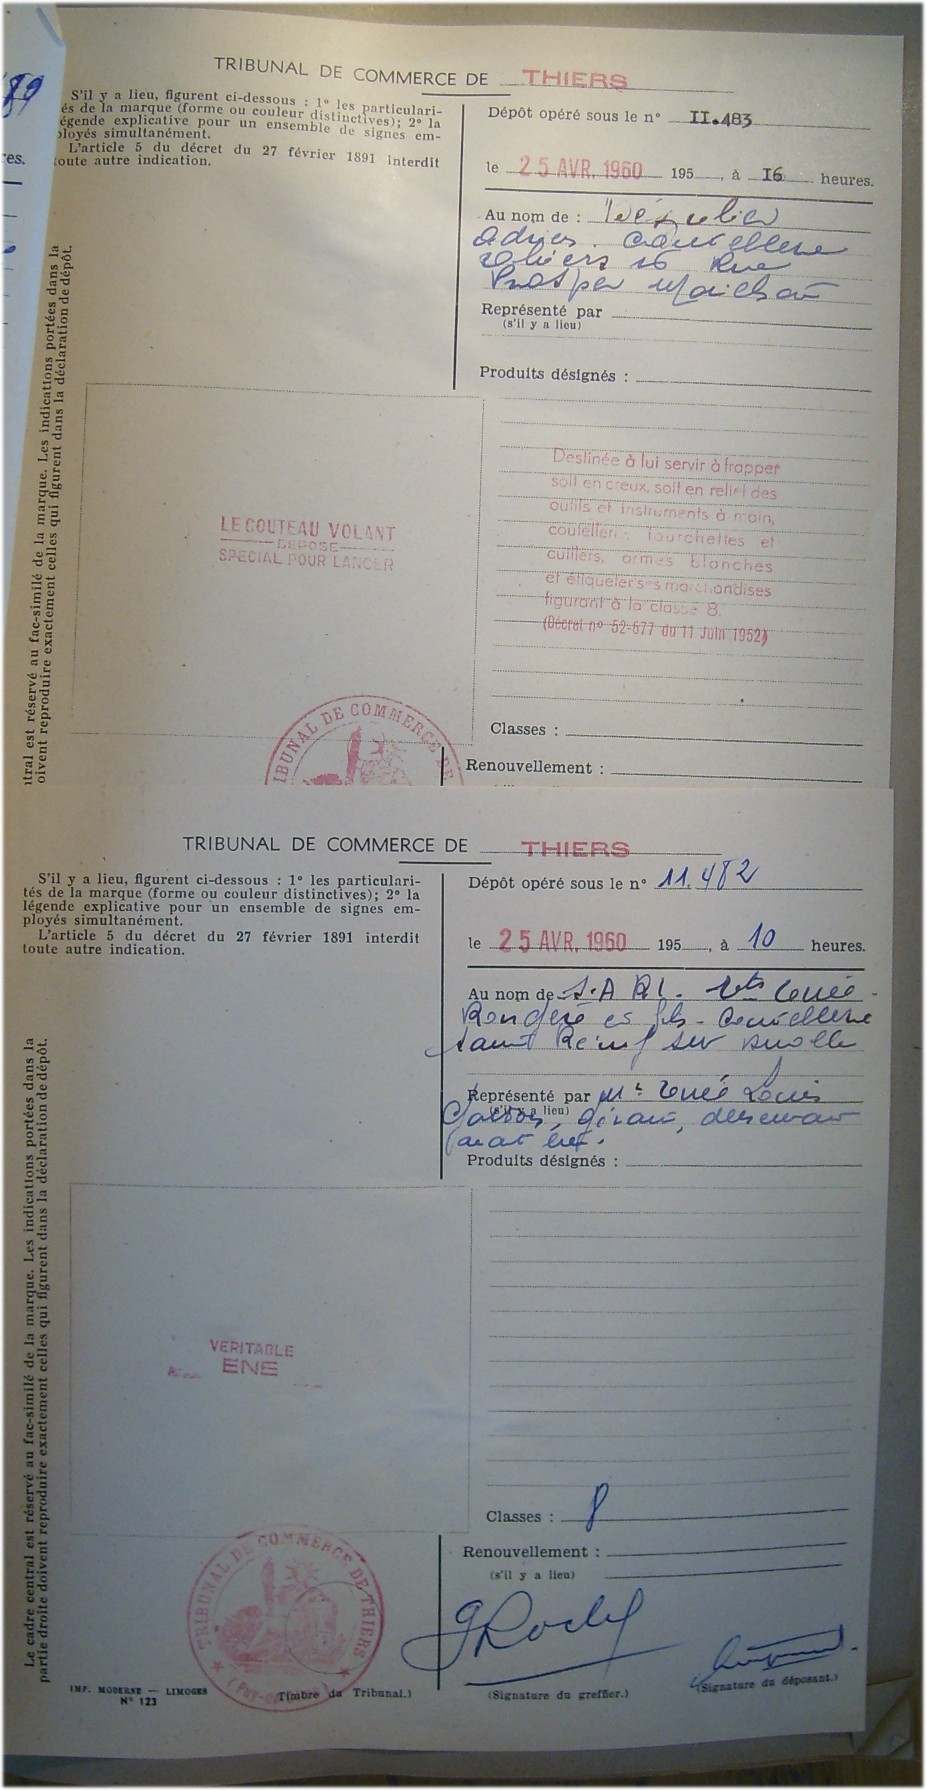 89
res.
TRIBUNAL DE COMMERCE DE THIERS
S'il y a lieu, figurent ci-dessous : 1º les particulari-
és de la marque (forme ou couleur distinctives); 2º la
égende explicative pour un ensemble de signes em-
ployés simultanément.
L'article 5 du décret du 27 février 1891 interdit
toute autre indication.
Dépôt opéré sous le nº II.483
le 25 AVR. 1960 195 , à I6 heures.
Au nom de :
coutellerie
Thiers 16 Rue
Prosper Marilhat
Représenté par
(s'il y a lieu)
Produits désignés :
itral est réservé au fac-similé de la marque. Les indications portées dans la
oivent reproduire exactement celles qui figurent dans la déclaration de dépôt.
LE COUTEAU VOLANT
DEPOSE
SPECIAL POUR LANCER
Destinée à lui servir à frapper
soit en creux, soit en relief des
outils et instruments à main,
coutellerie, fourchettes et
cuillers, armes blanches
et étiqueter ses marchandises
figurant à la classe 8.
(Décret nº 52-677 du 11 Juin 1952)
Classes :
IBUNAL DE COMMERCE DE
Renouvellement :
TRIBUNAL DE COMMERCE DE THIERS
S'il y a lieu, figurent ci-dessous : 1º les particulari-
tés de la marque (forme ou couleur distinctives); 2º la
légende explicative pour un ensemble de signes em-
ployés simultanément.
L'article 5 du décret du 27 février 1891 interdit
toute autre indication.
Dépôt opéré sous le nº 11.482
le 25 AVR. 1960 195 , à 10 heures.
Au nom de S.A.R.L. Ets
et fils - Coutellerie
Saint Rémy sur Durolle
Représenté par Mr Louis
(s'il y a lieu)
gérant,
Produits désignés :
Le cadre central est réservé au fac-similé de la marque. Les indications portées dans la
partie droite doivent reproduire exactement celles qui figurent dans la déclaration de dépôt.
VERITABLE
ENE
Classes : 8
Renouvellement :
(s'il y a lieu)
TRIBUNAL DE COMMERCE DE THIERS
IMP. MODERNE — LIMOGES
Nº 123
(Timbre du Tribunal.)
(Signature du greffier.)
(Signature du déposant.)